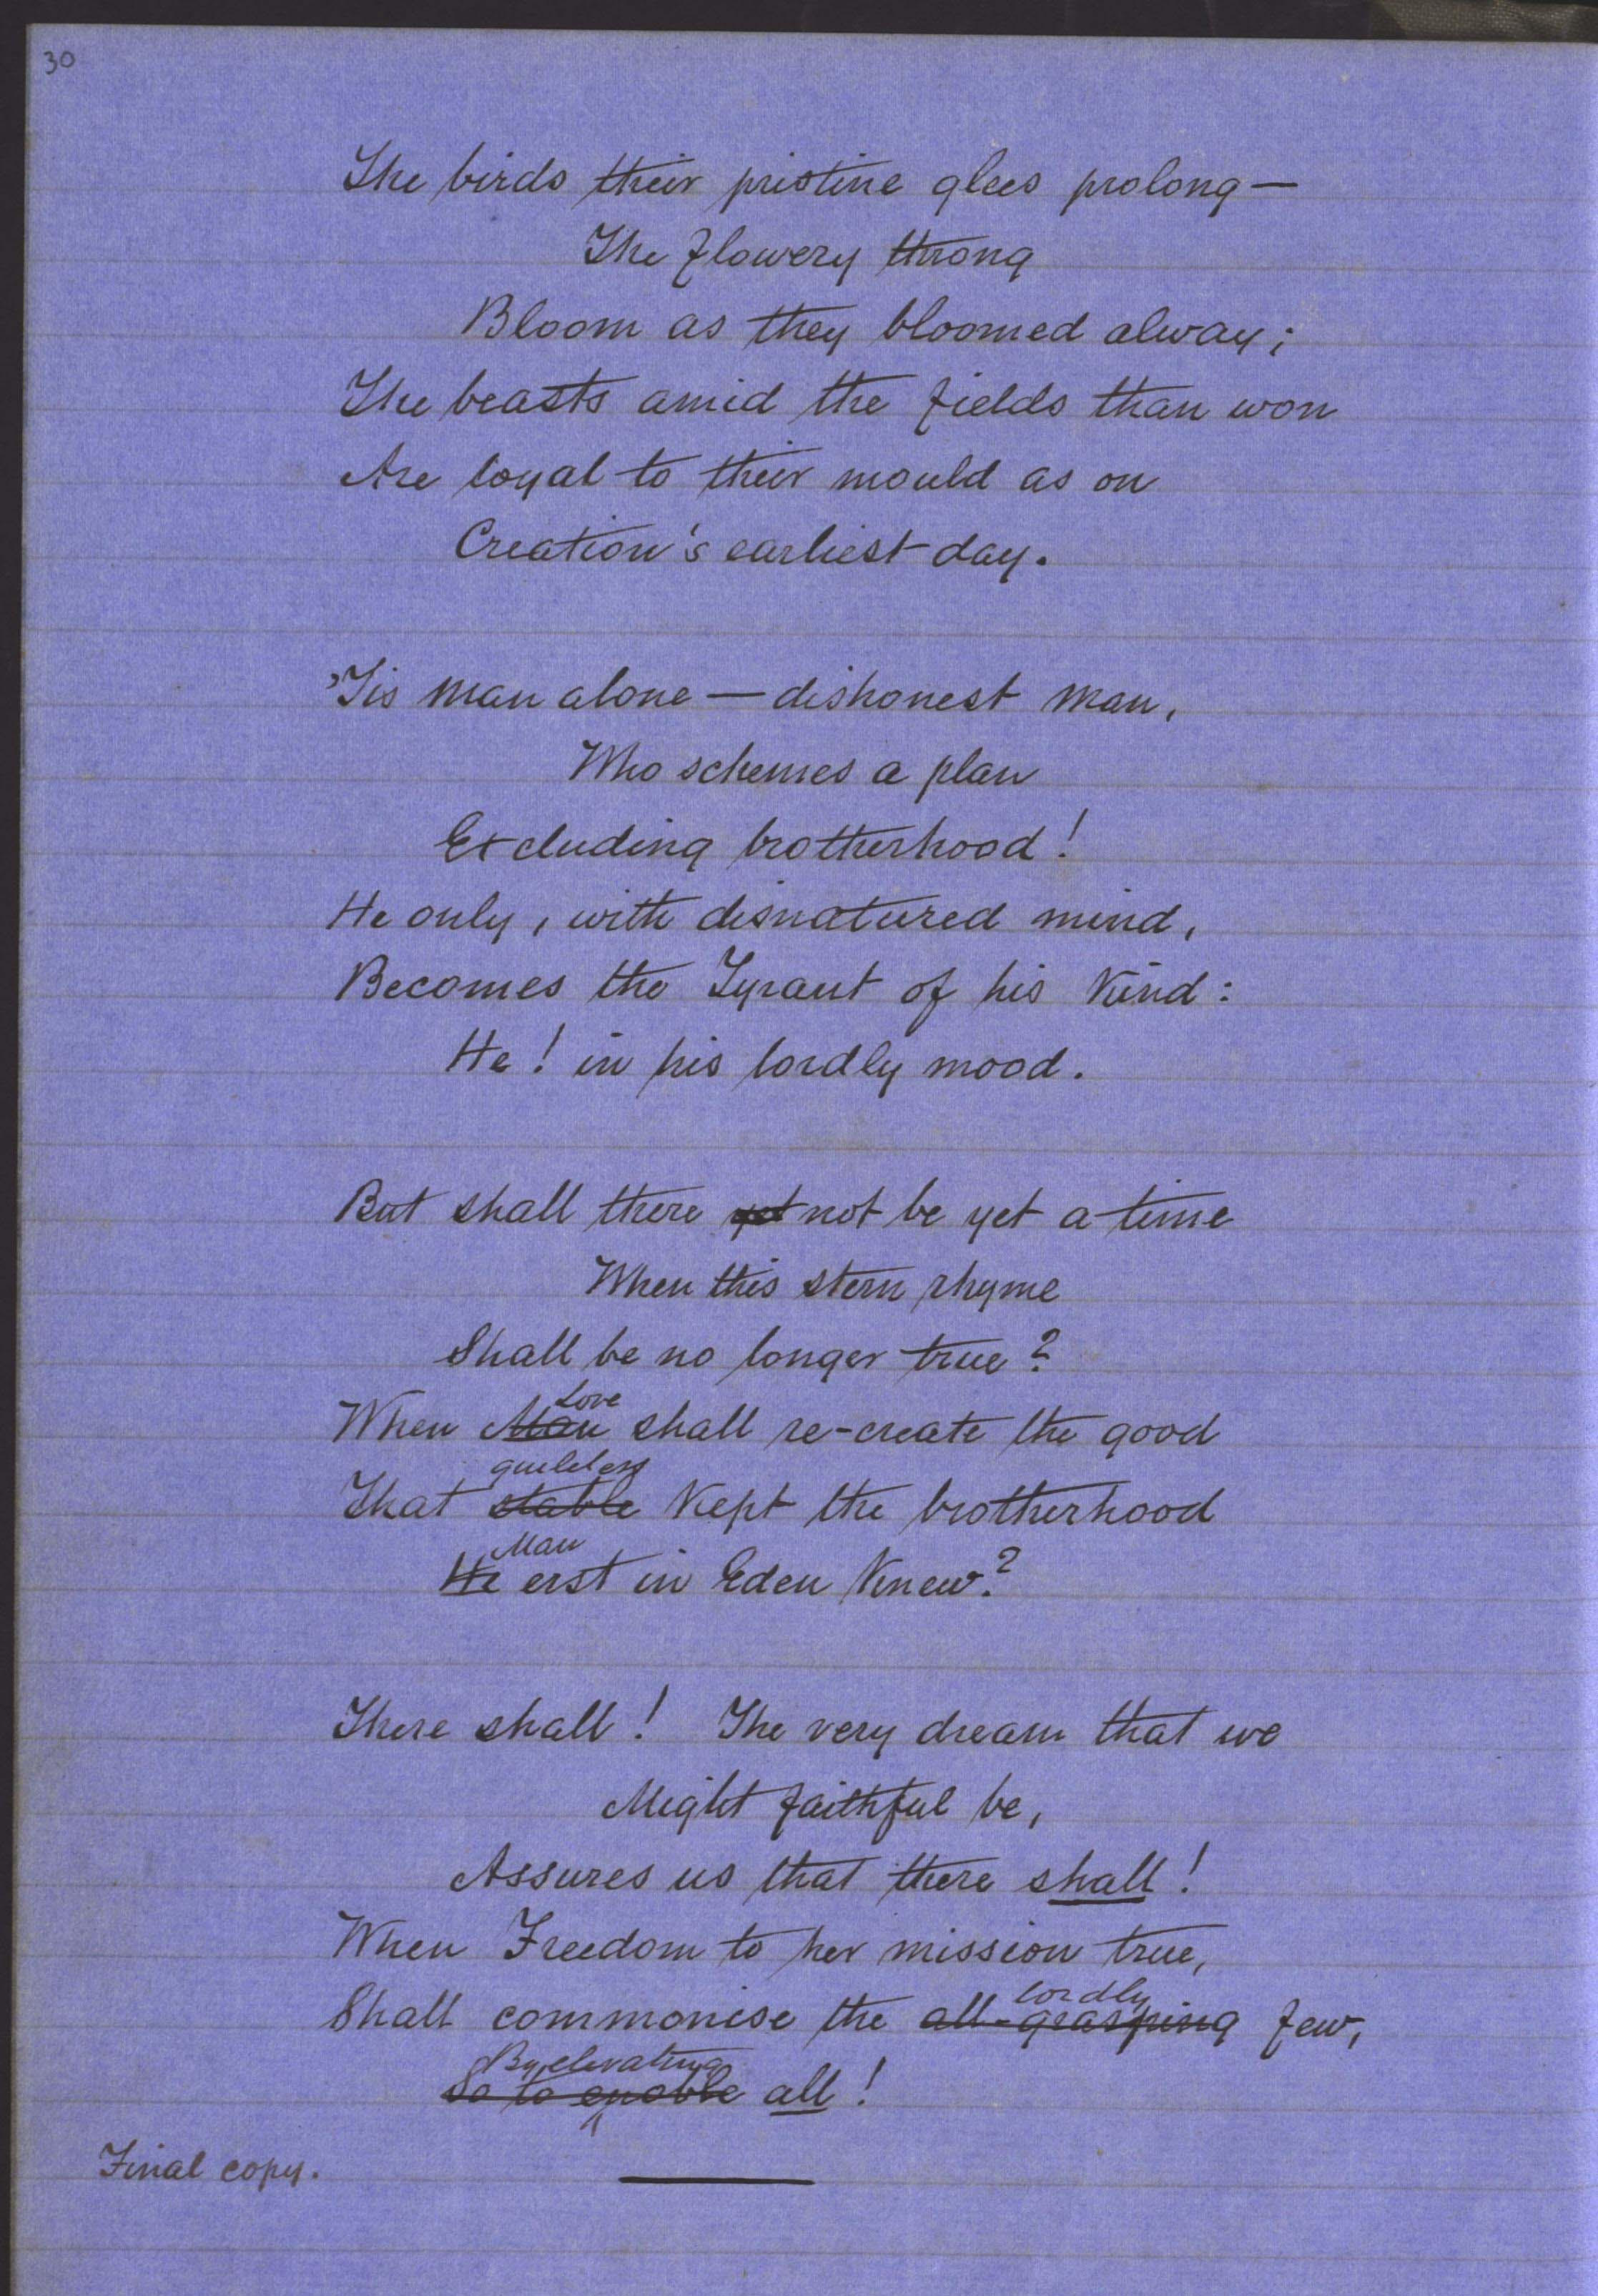 30
The birds their pristine glees prolong—
The flowery throng
Bloom as they bloomed alway;
The beasts amid the fields than won
Are loyal to their mould as on
Creation's earliest day.
'Tis man alone — dishonest man,
Who schemes a plan
Excluding brotherhood!
He only, with disnatured mind,
Becomes the Tyrant of his Kind:
He! in his lordly mood.
But shall there yet not be yet a time
When this stern rhyme
Shall be no longer true?
Love
When Man shall re-create the good
guileless
That stable Kept the brotherhood
Man
He erst in Eden Knew?
There shall! The very dream that we
Might faithful be,
Assures us that there shall!
When Freedom to her mission true,
lordly
Shall commonise the all-grasping few,
By elevating
So to enoble all!
Final copy.